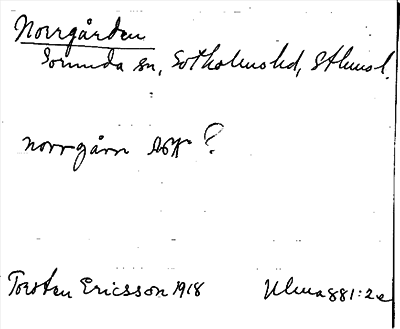 Norrgården
Sorunda sn, Sotholms hd, Sthms l.
norrgårn ?
Torsten Ericsson 1918 Ulma 881:2a